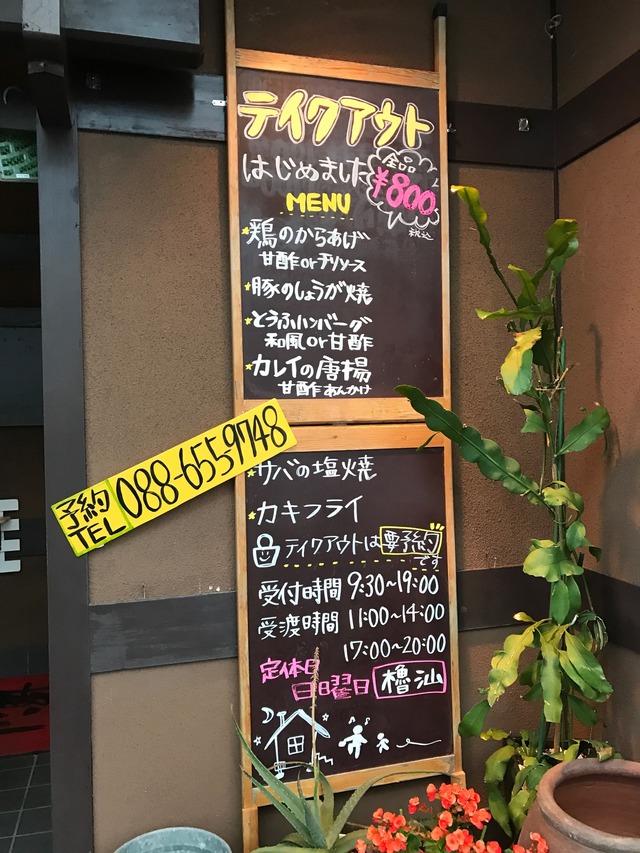 テイクアウト
はじめました
全品
¥800
税込
MENU
鶏のからあげ
甘酢orチリソース
豚のしょうが焼
とうふハンバーグ
和風or甘酢
カレイの唐揚
甘酢あんかけ
予約
TEL
088-6559748
サバの塩焼
カキフライ
テイクアウトは要予約
です
受付時間 9:30~19:00
受渡時間 11:00~14:00
17:00~20:00
定休日
日曜日